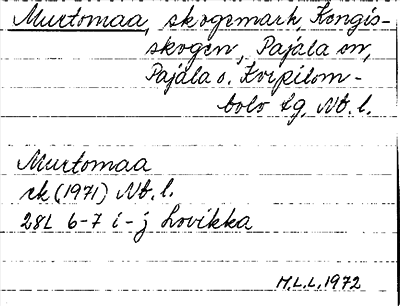 Murtomaa, skogsmark, Kengis-
skogen, Pajala sn,
Pajala o. Korpilom-
bolo tg, Nb. l.
Murtomaa
ek (1971) Nb. l.
28L 6-7 i-j Lovikka
M.L.L, 1972